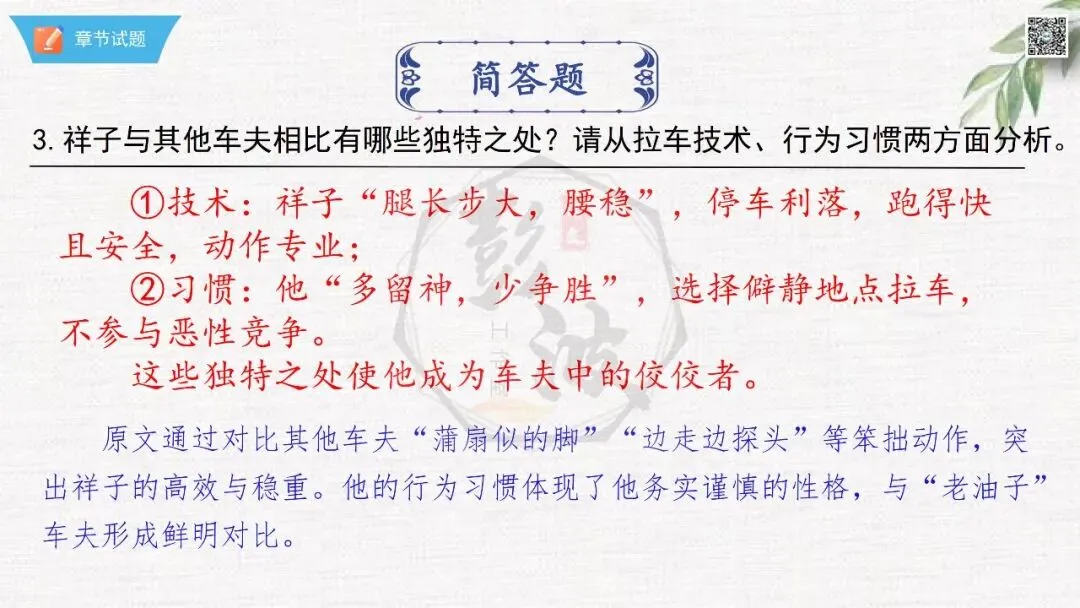 章节试题
简答题
3.祥子与其他车夫相比有哪些独特之处？请从拉车技术、行为习惯两方面分析。
①技术：祥子“腿长步大，腰稳”，停车利落，跑得快
且安全，动作专业；
②习惯：他“多留神，少争胜”，选择僻静地点拉车，
不参与恶性竞争。
这些独特之处使他成为车夫中的佼佼者。
原文通过对比其他车夫“蒲扇似的脚”“边走边探头”等笨拙动作，突
出祥子的高效与稳重。他的行为习惯体现了他务实谨慎的性格，与“老油子”
车夫形成鲜明对比。